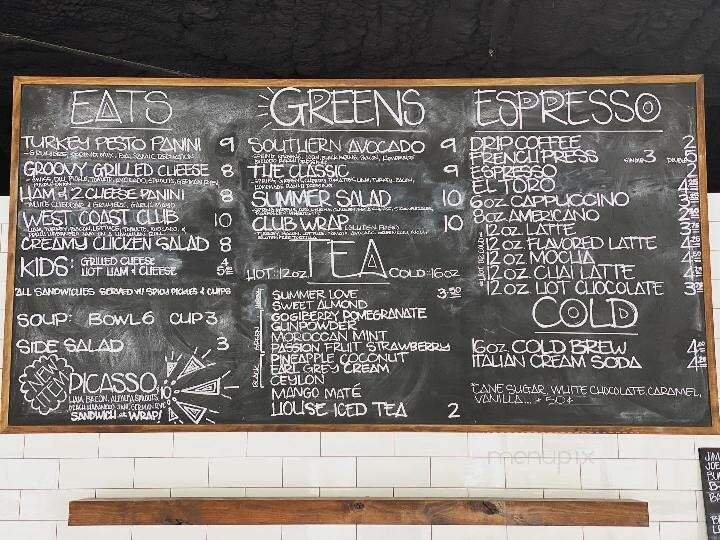 EATS
TURKEY PESTO PANINI 9
GROOVY GRILLED CHEESE 8
HAM & 2 CHEESE PANINI 8
WEST COAST CLUB 10
CREAMY CHICKEN SALAD 8
KIDS: GRILLED CHEESE 4
HOT HAM & CHEESE 5
ALL SANDWICHES SERVED W/ SPICY PICKLES & CHIPS
SOUP: BOWL 6 CUP 3
SIDE SALAD 3
NEW ITEM
PICASSO 10
HAM, BACON, ALFALFA SPROUTS,
SANDWICH or WRAP!
GREENS
SOUTHERN AVOCADO 9
THE CLASSIC 9
SUMMER SALAD 10
CLUB WRAP (GLUTEN FREE) 10
TEA
HOT: 12oz COLD: 16oz
SUMMER LOVE 3.50
SWEET ALMOND
GOGIBERRY POMEGRANATE
GREEN
GUNPOWDER
MOROCCAN MINT
PASSION FRUIT STRAWBERRY
PINEAPPLE COCONUT
BLACK
EARL GREY CREAM
CEYLON
MANGO MATÉ
HOUSE ICED TEA 2
ESPRESSO
DRIP COFFEE 2
FRENCH PRESS SINGLE 3 DOUBLE 5
ESPRESSO 2
EL TORO 4
6oz CAPPUCCINO 3
8oz AMERICANO 2
12oz LATTE 3
12oz FLAVORED LATTE 4
12oz MOCHA 4
12oz CHAI LATTE 4
12oz HOT CHOCOLATE 3
COLD
16oz COLD BREW 4
ITALIAN CREAM SODA 4
*CANE SUGAR, WHITE CHOCOLATE, CARAMEL,
VANILLA... + 50¢
menupix